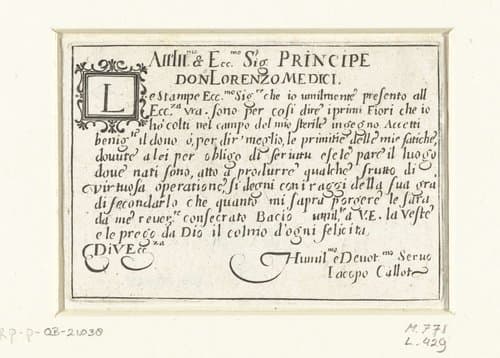 All Ill.mo & Ecc.mo Sig. PRINCIPE
DON LORENZO MEDICI.
Le Stampe Ecc.mo Sig.re che io umilmente presento all
Ecc.za vra. sono per cosi dire i primi Fiori che io
hò colti nel campo del mio sterile ingegno. Accetti
benig.te il dono ò, per dir meglio, le primitie delle mie fatiche,
douute a lei per obligo di seruitu e se le pare il luogo
doue nati sono, atto à produrre qualche frutto di
virtuosa operatione, si degni con i raggi della sua gra
di fecondarlo che quanto mi saprà porgere le sarà
da me reuer.te consecrato Bacio umil.te à V.E. la veste
e le prego da Dio il colmo d'ogni felicita
Di V. Ecc.za
Humil.mo e Deuot.mo Seruo
Iacopo Callot
RP-P-OB-21.038
M. 771
L. 429